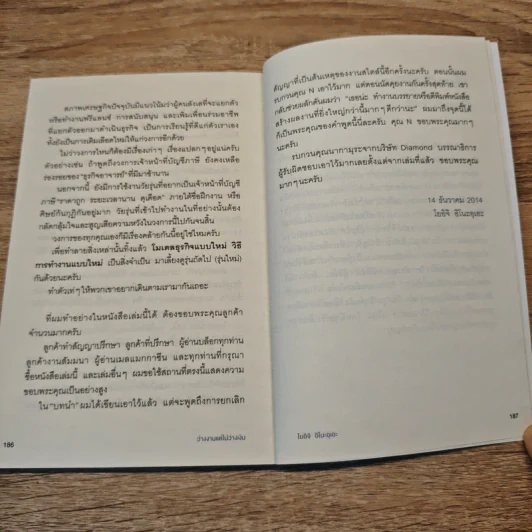 สภาพเศรษฐกิจปัจจุบันมีแนวโน้มว่าผู้คนลังเลที่จะแยกตัว
หรือทำงานฟรีแลนซ์ การสนับสนุน และเติมเพื่อนร่วมอาชีพ
ที่แยกตัวออกมาดำเนินธุรกิจ เป็นการเรียนรู้ที่ดีแก่ตัวเราเอง
ทั้งยังเป็นการเติมเลือดใหม่ให้แก่วงการอีกด้วย
ไม่ว่าวงการไหนก็ต้องมีเรื่องเก่าๆ เรื่องแปลกๆอยู่นะครับ
ตัวอย่างเช่น ถ้าพูดถึงวงการเจ้าหน้าที่บัญชีภาษี ยังคงเหลือ
ร่องรอยของ "ธุรกิจอาจารย์" ที่มีมาช้านาน
นอกจากนี้ ยังมีการใช้งานวัยรุ่นที่อยากเป็นเจ้าหน้าที่บัญชี
ภาษี"ราคาถูก ระยะเวลานาน ดุเดือด" ภายใต้ชื่อฝึกงาน หรือ
ศิษย์ก้นกุฏิกันอยู่มาก วัยรุ่นที่เข้าไปทำงานในที่อย่างนั้นต้อง
กลัดกลุ้มใจและสูญเสียความหวังในวงการนี้ไปกันจนสิ้น
วงการของทุกคุณเองก็มีเรื่องคล้ายกันนี้อยู่ใช่ไหมครับ
เพื่อทำลายสิ่งเหล่านั้นทิ้งแล้ว โมเดลธุรกิจแบบใหม่ วิธี
การทำงานแบบใหม่ เป็นสิ่งจำเป็น มาเลี้ยงดูรุ่นถัดไป (รุ่นใหม่)
กันด้วยนะครับ
ทำตัวเท่ๆ ให้พวกเขาอยากเดินตามเรามากันเถอะ
ที่ผมทำอย่างในหนังสือเล่มนี้ได้ ต้องขอบพระคุณลูกค้า
จำนวนมากครับ
ลูกค้าทำสัญญาปรึกษา ลูกค้าที่ปรึกษา ผู้อ่านบล็อกทุกท่าน
ลูกค้างานสัมมนา ผู้อ่านเมลแมกกาซีน และทุกท่านที่กรุณา
ซื้อหนังสือเล่มนี้ และเล่มอื่นๆ ผมขอใช้สถานที่ตรงนี้แสดงความ
ขอบพระคุณเป็นอย่างสูง
ใน "บทนำ" ผมได้เขียนเอาไว้แล้ว แต่จะพูดถึงการยกเลิก
186
ว่างงานแต่ไม่ว่างเงิน
สัญญาที่เป็นต้นเหตุของงานสไตล์นี้อีกครั้งนะครับ ตอนนั้นผม
รบกวนคุณ N เอาไว้มาก แต่ตอนนัดคุยงานกันครั้งสุดท้าย เขา
กลับช่วยผลักดันผมว่า "เธอน่ะ ทำงานบรรยายหรือตีพิมพ์หนังสือ
สร้างผลงานที่ยิ่งใหญ่กว่านี้มากๆดีกว่านะ" ผมมาถึงจุดนี้ได้
ก็เป็นพระคุณของคำพูดนี้นี่ละครับ คุณ N ขอบพระคุณมากๆ
นะครับ
รบกวนคุณนากามุระจากบริษัท Diamond บรรณาธิการ
ผู้รับผิดชอบเอาไว้มากเลยตั้งแต่จากเล่มที่แล้ว ขอบพระคุณ
มากๆนะครับ
14 ธันวาคม 2014
โยอิจิ อิโนะอุเอะ
โยอิจิ อิโนะอุเอะ
187